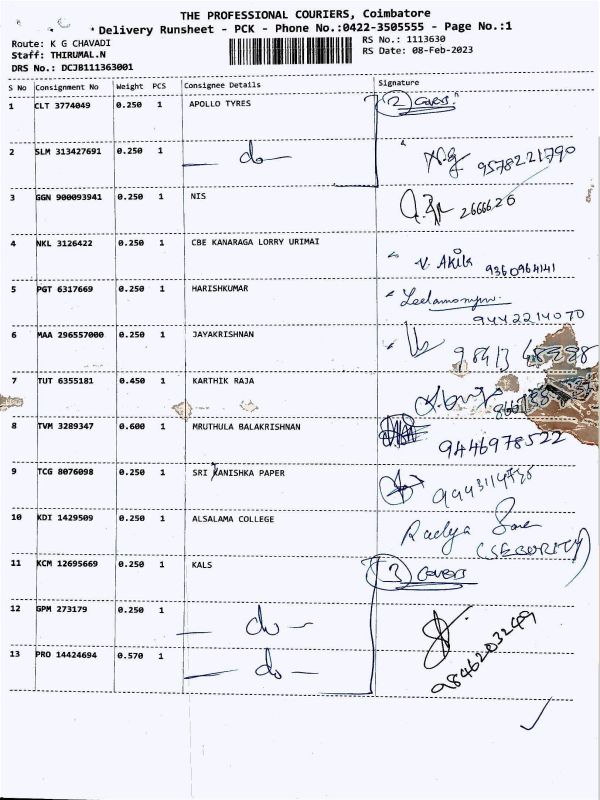 THE PROFESSIONAL COURIERS, Coimbatore
Delivery Runsheet - PCK - Phone No.:0422-3505555 - Page No.:1
Route: K G CHAVADI
RS No.: 1113630
Staff: THIRUMAL.N
RS Date: 08-Feb-2023
DRS No.: DCJB111363001
S No Consignment No Weight PCS Consignee Details Signature
1 CLT 3774049 0.250 1 APOLLO TYRES 2 Covers
2 SLM 313427691 0.250 1 — do — 9578221790
3 GGN 900093941 0.250 1 NIS 2666626
4 NKL 3126422 0.250 1 CBE KANARAGA LORRY URIMAI V. Akila 9360964141
5 PGT 6317669 0.250 1 HARISHKUMAR
9442214070
6 MAA 296557000 0.250 1 JAYAKRISHNAN
7 TUT 6355181 0.450 1 KARTHIK RAJA
8 TVM 3289347 0.600 1 MRUTHULA BALAKRISHNAN 9446978522
9 TCG 8076098 0.250 1 SRI KANISHKA PAPER
10 KDI 1429509 0.250 1 ALSALAMA COLLEGE
(SECURITY)
11 KCM 12695669 0.250 1 KALS 3 Covers
12 GPM 273179 0.250 1 — do —
9846203249
13 PRO 14424694 0.570 1 — do —